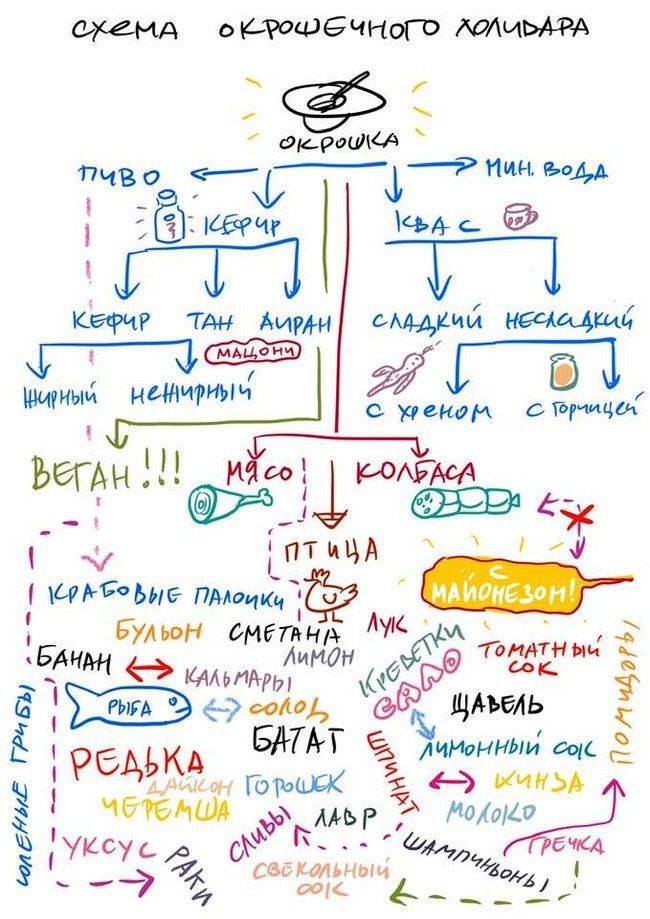 СХЕМА ОКРОШЕЧНОГО ХОЛИВАРА
ОКРОШКА
ПИВО
МИН. ВОДА
КЕФИР
КВАС
КЕФИР ТАН АЙРАН
СЛАДКИЙ НЕСЛАДКИЙ
МАЦОНИ
ЖИРНЫЙ НЕЖИРНЫЙ
С ХРЕНОМ С ГОРЧИЦЕЙ
ВЕГАН!!!
МЯСО КОЛБАСА
ПТИЦА
С
МАЙОНЕЗОМ!
КРАБОВЫЕ ПАЛОЧКИ
БУЛЬОН СМЕТАНА ЛУК
ЛИМОН
БАНАН
КАЛЬМАРЫ
КРЕВЕТКИ
САЛО
ТОМАТНЫЙ
СОК
ПОМИДОРЫ
ЩАВЕЛЬ
СОЛЕНЫЕ ГРИБЫ
РЫБА
СОЛОД
БАТАТ
ЛИМОННЫЙ СОК
РЕДЬКА
ДАЙКОН
ГОРОШЕК
ШПИНАТ
КИНЗА
ЧЕРЕМША
МОЛОКО
ЛАВР
СЛИВЫ
УКСУС
РАКИ
СВЕКОЛЬНЫЙ
СОК
ШАМПИНЬОНЫ
ГРЕЧКА